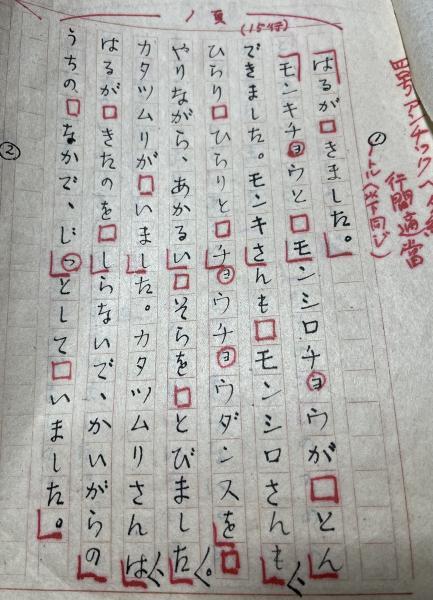 1頁
(15行)
①
四号アンチックベタ組
行間適當
はるが□きました。
モンキチョウと□モンシロチョウが□とん
できました。モンキさんも□モンシロさんも
ひらり□ひらりと□チョウチョウダンスを□
やりながら、あかるい□そらを□とびました。
カタツムリが□いました。カタツムリさんは
はるが□きたのを□しらないで、かいがらの
うちの□なかで、じっとして□いました。
②